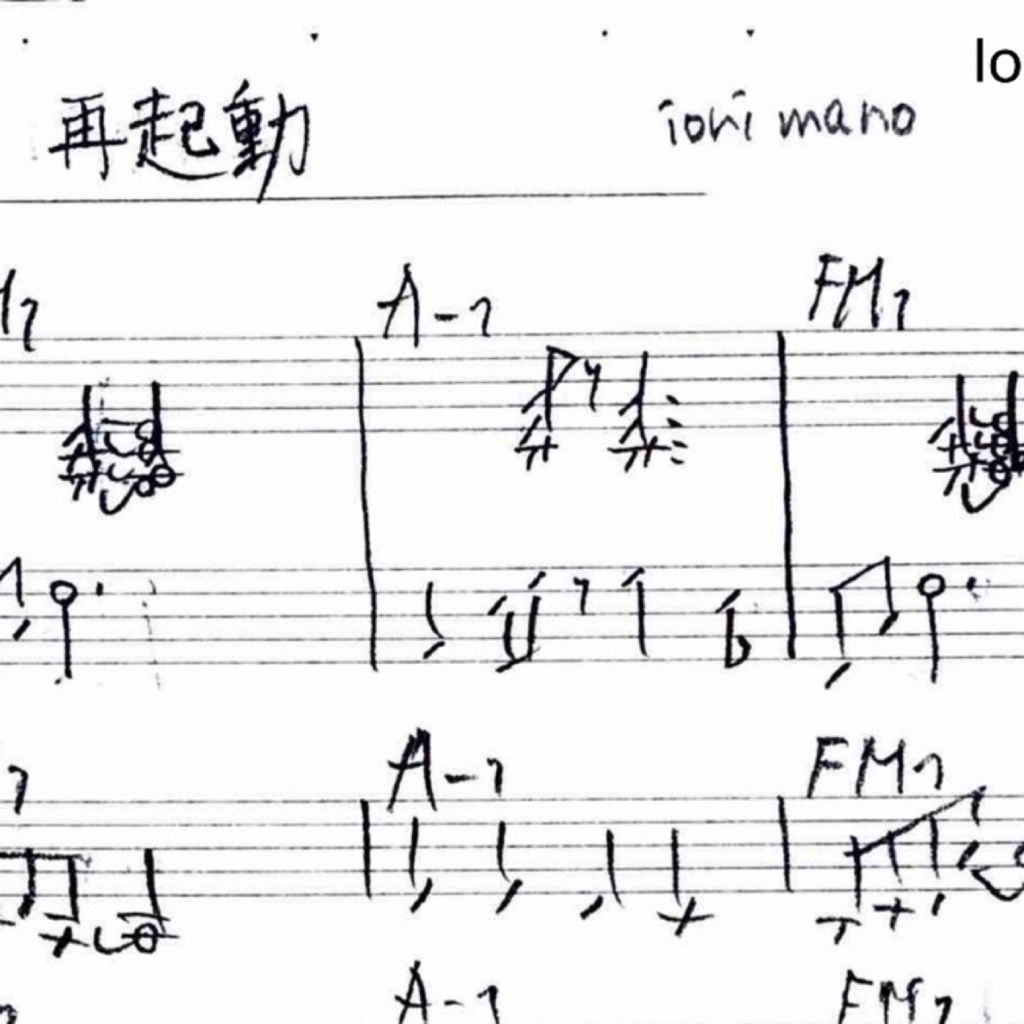 再起動 iori mano
A-7 FM7
A-7 FM7
A-7 FM7